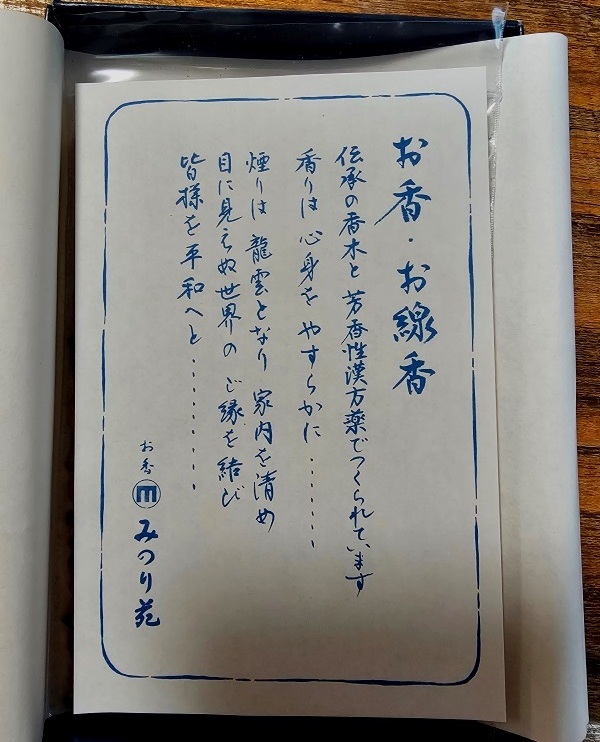 お香・お線香
伝承の香木と 芳香性漢方薬でつくられています
香りは 心身を やすらかに・・・・・・・・
煙りは 龍雲となり 家内を清め
目に見えぬ世界の ご縁を結び
皆様を平和へと・・・・・・・・
お香 m みのり苑